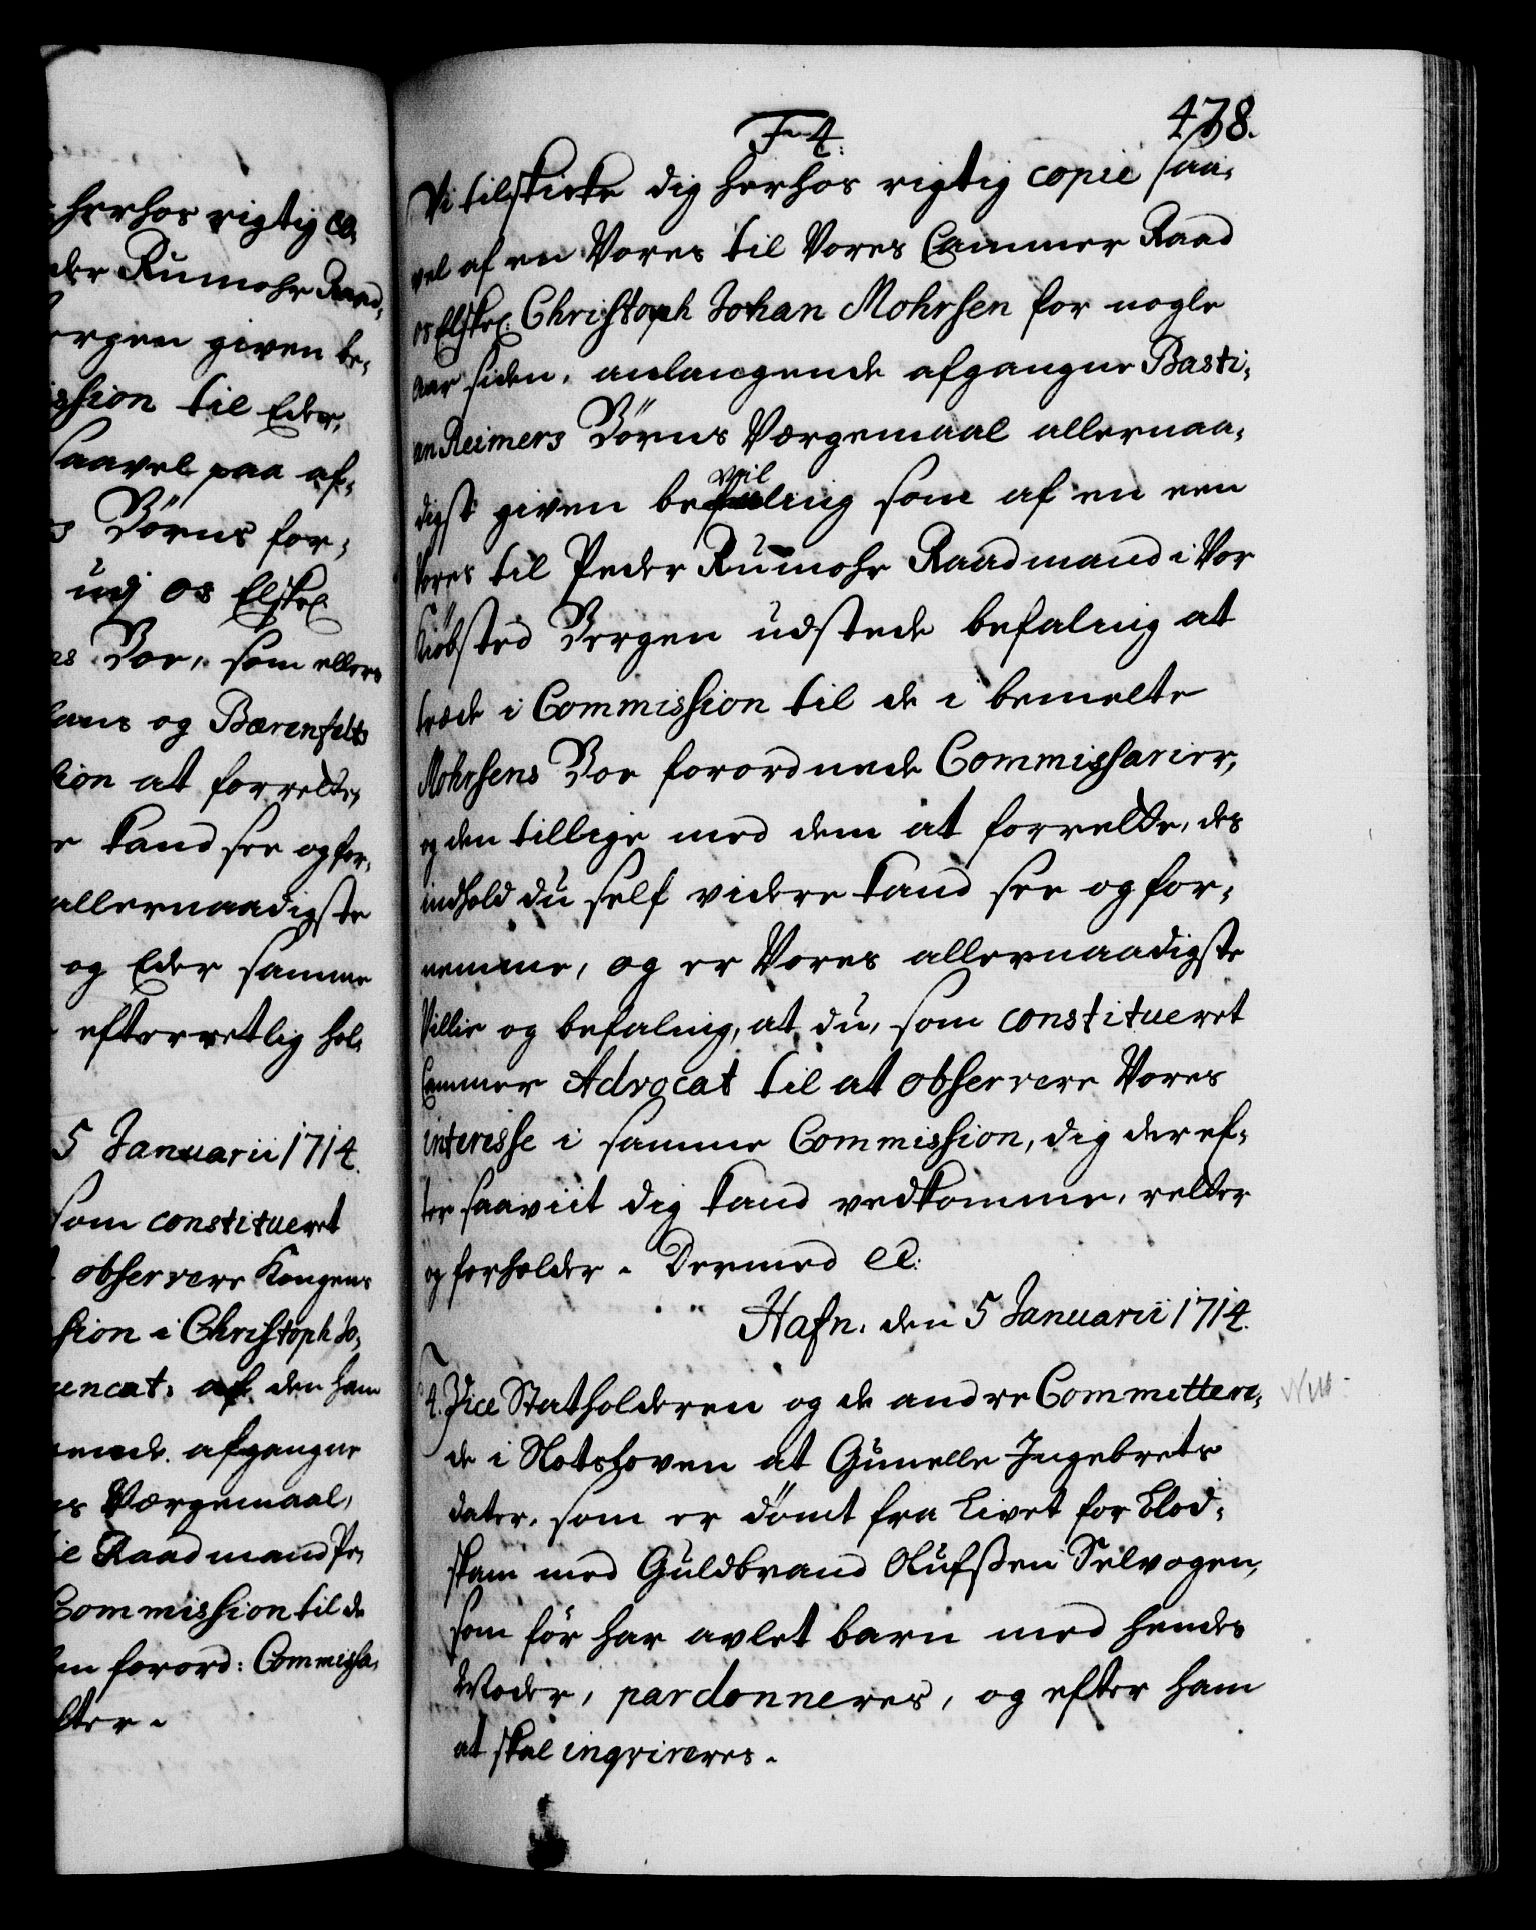 herhos rigtig co-
der Rumohr Raad-
ergen given be-
ission til Eder,
saavel paa af-
s Börns for-
udj os Elskel.
es Boe, som ellers
og Bærenfelts
sion at forrette,
e kand see og for-
allernaadigste
og Eder samme
efterretlig hol-
5 Januarii 1714.
som constitueret
observere Kongens
sion i Christoph Jo-
af den ham
afgangne
ns Værgemaal,
Raadmand Pe-
Commission til de
en forord: Commissa-
F 4.
478.
Vi tilskicke dig herhos rigtig copie saa-
vel af en Vores til Vores Cammer Raad
os Elskel: Christoph Johan Mohrsen for nogle
aar siden, anlangende afgangne Basti-
an Reimers Börns Værgemaal allernaa-
digst given bevilling som af en een
Vores til Peder Rumohr Raadmand i Vor
Kiöbsted Bergen udstede befaling at
træde i Commission til de i bemelte
Mohrsens Boe forordnede Commissarier,
og den tillige med dem at forrette, des
indhold du self videre kand see og for-
nemme, og er Vores allernaadigste
Villie og befaling, at du, som constitueret
Cammer Advocat til at observere Vores
interesse i samme Commission, dig der ef-
ter saaviit dig kand vedkomme, retter
og forholder. Dermed etc:
Hafn. den 5 Januarii 1714.
4. Vice Statholderen og de andre Committere-
de i Slotsloven at Gunelle Ingebrets
dater, som er dömt fra Livet for Blod-
skam med Guldbrand Olufsen Selvogen,
som för har avlet barn med hendes
Moder, pardonneres, og efter ham
at skal inqvireres.